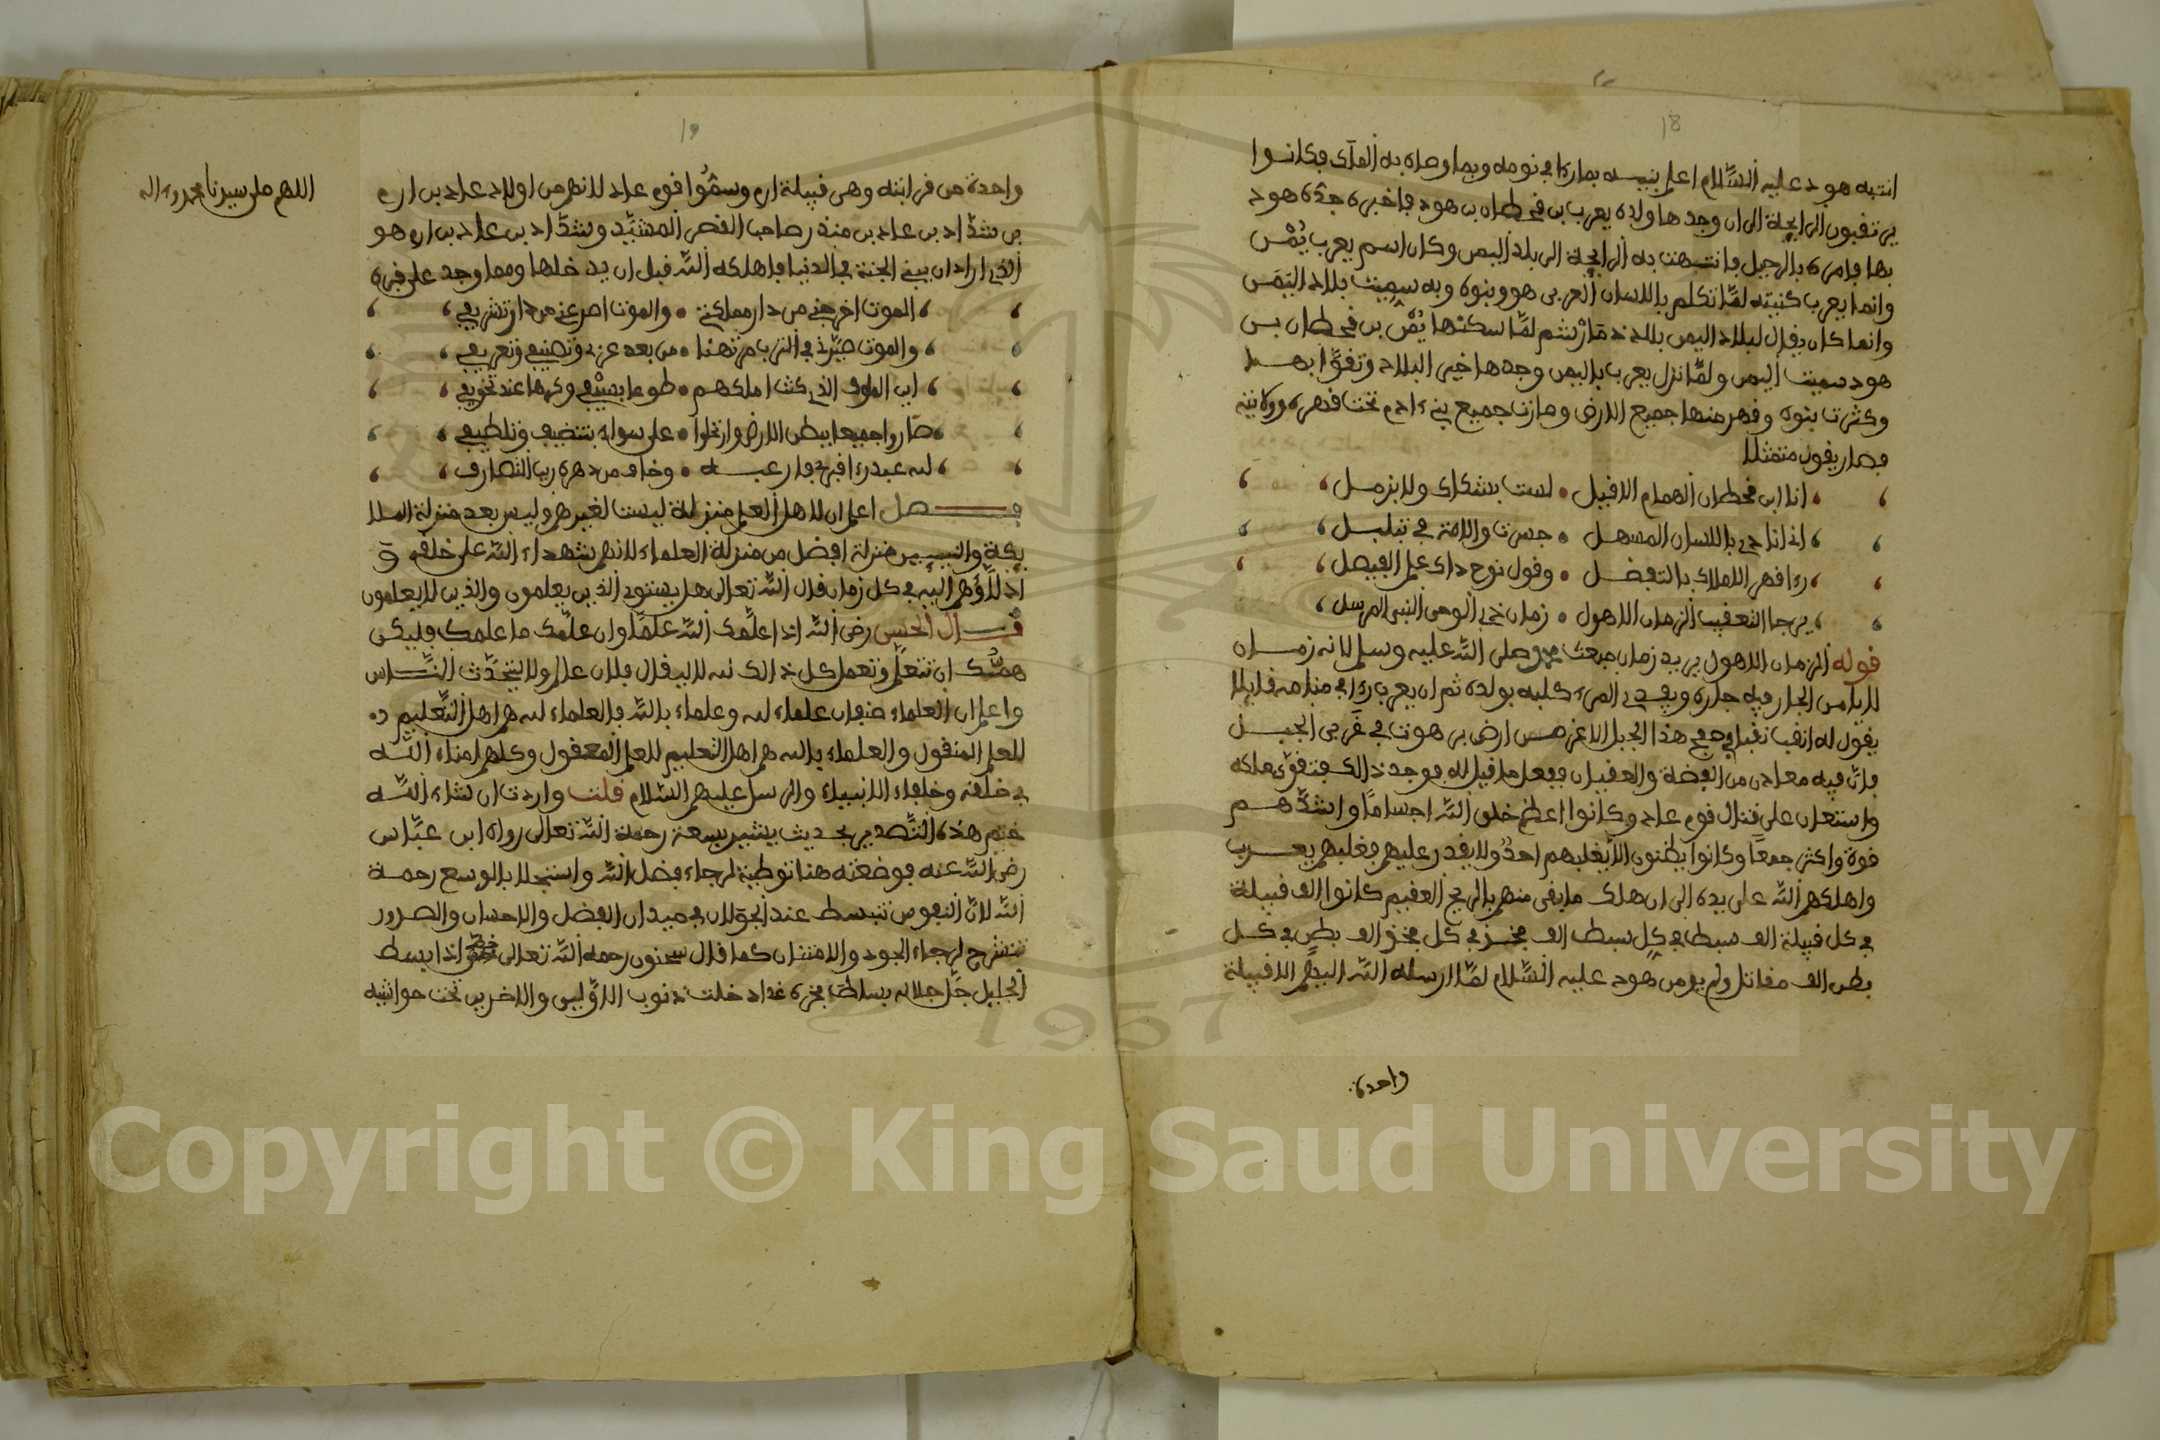 18
انتبه هود عليه السلام اعلم بنيه بما رءا في نومه وبما وصاه به الملك فكانوا
يرتقبون الرايحة الى ان وجدها ولده يعرب بن قحطان بن هود فاخبره جده هود
بها فامره بالرحيل فانتهت به الرايحة الى بلد اليمن وكان اسم يعرب يُمْن
وانما يعرب كنيته لمّا تكلم باللسان العربي هو وبنوه وبه سميت بلاد اليمَن
وانما كان يقال لبلاد اليمن بلاد ثم لمّا سكنها يُمْن بن قحطان بن
هود سميت اليمن ولمّا نزل يعرب باليمن وجدها خير البلاد وتقوّا بها
وكثرت بنوه وقهر منها جميع الارض وحازت جميع بني ءادم تحت قهره وولايته
فصار يقول متمثلا
انا ابن قحطان الهمام الافيل • لست بشكاك ولا بزمل
اذ انا جي باللسان المسهل • جسرت والامة في تبلبل
رءا قهر الاملاك بالتفضل • وقول نوح ذاك علم الفيصل
يرجا التعقيب الزمان الاهول • زمان ذي الوحي النبي المرسل
قوله الزمان الاهول يريد زمان مبعث محمد صلى الله عليه وسلم لانه زمان
لا يامن الجار فيه جاره ويفدي المرء كلبه بولده ثم ان يعرب رءا في منامه قايلا
يقول له انقب نقبا في هذا الجبل الاغر من ارض برهوت في غربي الجبل
فانّ فيه معادن من الفضة والعقيان ففعل ما قيل له فوجد ذالك فتقوّى ملكه
واستعان على قتال قوم عاد وكانوا اعظم خلق اللّه اجسامًا واشدّهم
قوة واكثر جمعًا وكانوا يظنون الّا يغلبهم احدٌ ولا يقدر عليهم فغلبهم يعرب
واهلكهم اللّه على يده الى ان هلك ما بقى منهم بالريح العقيم كانوا الف قبيلة
في كل قبيلة الف سبط في كل سبط الف فخذ في كل فخذ الف بطن في كل
بطن الف مقاتل ولم يومن هود عليه السّلام لمّا ارسله اللّه اليهم الا قبيلة
واحدة
19
واحدة من قرابته وهي قبيلة ارم وسمُّوا قوم عاد لانهم من اولاد عاد بن ارم
بن شدّاد بن عاد بن منذر صاحب القصر المشيّد وشدّاد بن عاد بن ارم هو
الذي اراد ان يبني الجنة في الدنيا فاهلكه اللّه قبل ان يدخلها ومما وجد على قبره
الموت اخرجني من دار مملكتي • والموت اصرعني من دار تشريفي
والموت صيّرني في الترب مرتهنا • من بعد عزي وتصنيفي وتعريفي
اين الملوك الذي كنت املكهم • طوعا بسيفي وكرها عند تخويفي
صاروا جميعا ببطن الارض وارتحلوا • على سواء بتنضيف وتلطيف
لله عبد رءا قبري فارعبه • وخاف من دهره ريب التصاريف
فصل اعلم ان لاهل العلم منزلة ليست لغيرهم وليس بعد منزلة الملا
يكة والنبيين منزلة افضل من منزلة العلماء لانهم شهداء اللّه على خلقه و
ادلّاؤهم اليه في كل زمان قال اللّه تعالى هل يستوي الذين يعلمون والذين لا يعلمون
قال الحسن رضى اللّه اذا علّمك اللّه علمًا وان علّمك ما علمك فليكن
همّك ان تتعلّم وتعمل كل ذالك لله لا ليقال فلان عالم ولا ليتحدّث النّاس
واعلم ان العلماء صنفان علماء لله وعلماء بالله فالعلماء لله هم اهل التّعليم
للعلم المنقول والعلماء بالله هم اهل التعليم للعلم المعقول وكلهم امناء اللّه
في خلقه وخلفاء الانبياء والرسل عليهم السّلام قلت واردت ان شاء اللّه
ختم هذه التّصدير بحديث يشير بسعة رحمة اللّه تعالى رواه ابن عبّاس
رضى اللّه عنه فوضعته هنا توطية لرجاء فضل اللّه واستجلابا لوسع رحمة
اللّه لانّ النفوس تنبسط عند الجولان في ميدان الفضل والاحسان والصدور
تنشرح لرجاء الجود والامتنان كما قال سحنون رحمه اللّه تعالى اذا بسط
الجليل جلّ جلاله بساط فخره غدا دخلت ذنوب الاوّلين والاخرين تحت حواشيه
اللهم صل سيدنا محمد وءاله